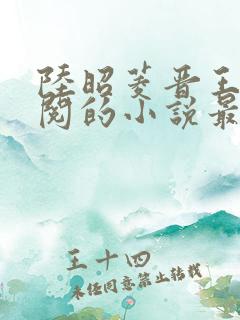 陸昭菱晋王
閱的小說最
王十四
未经同意禁止转载